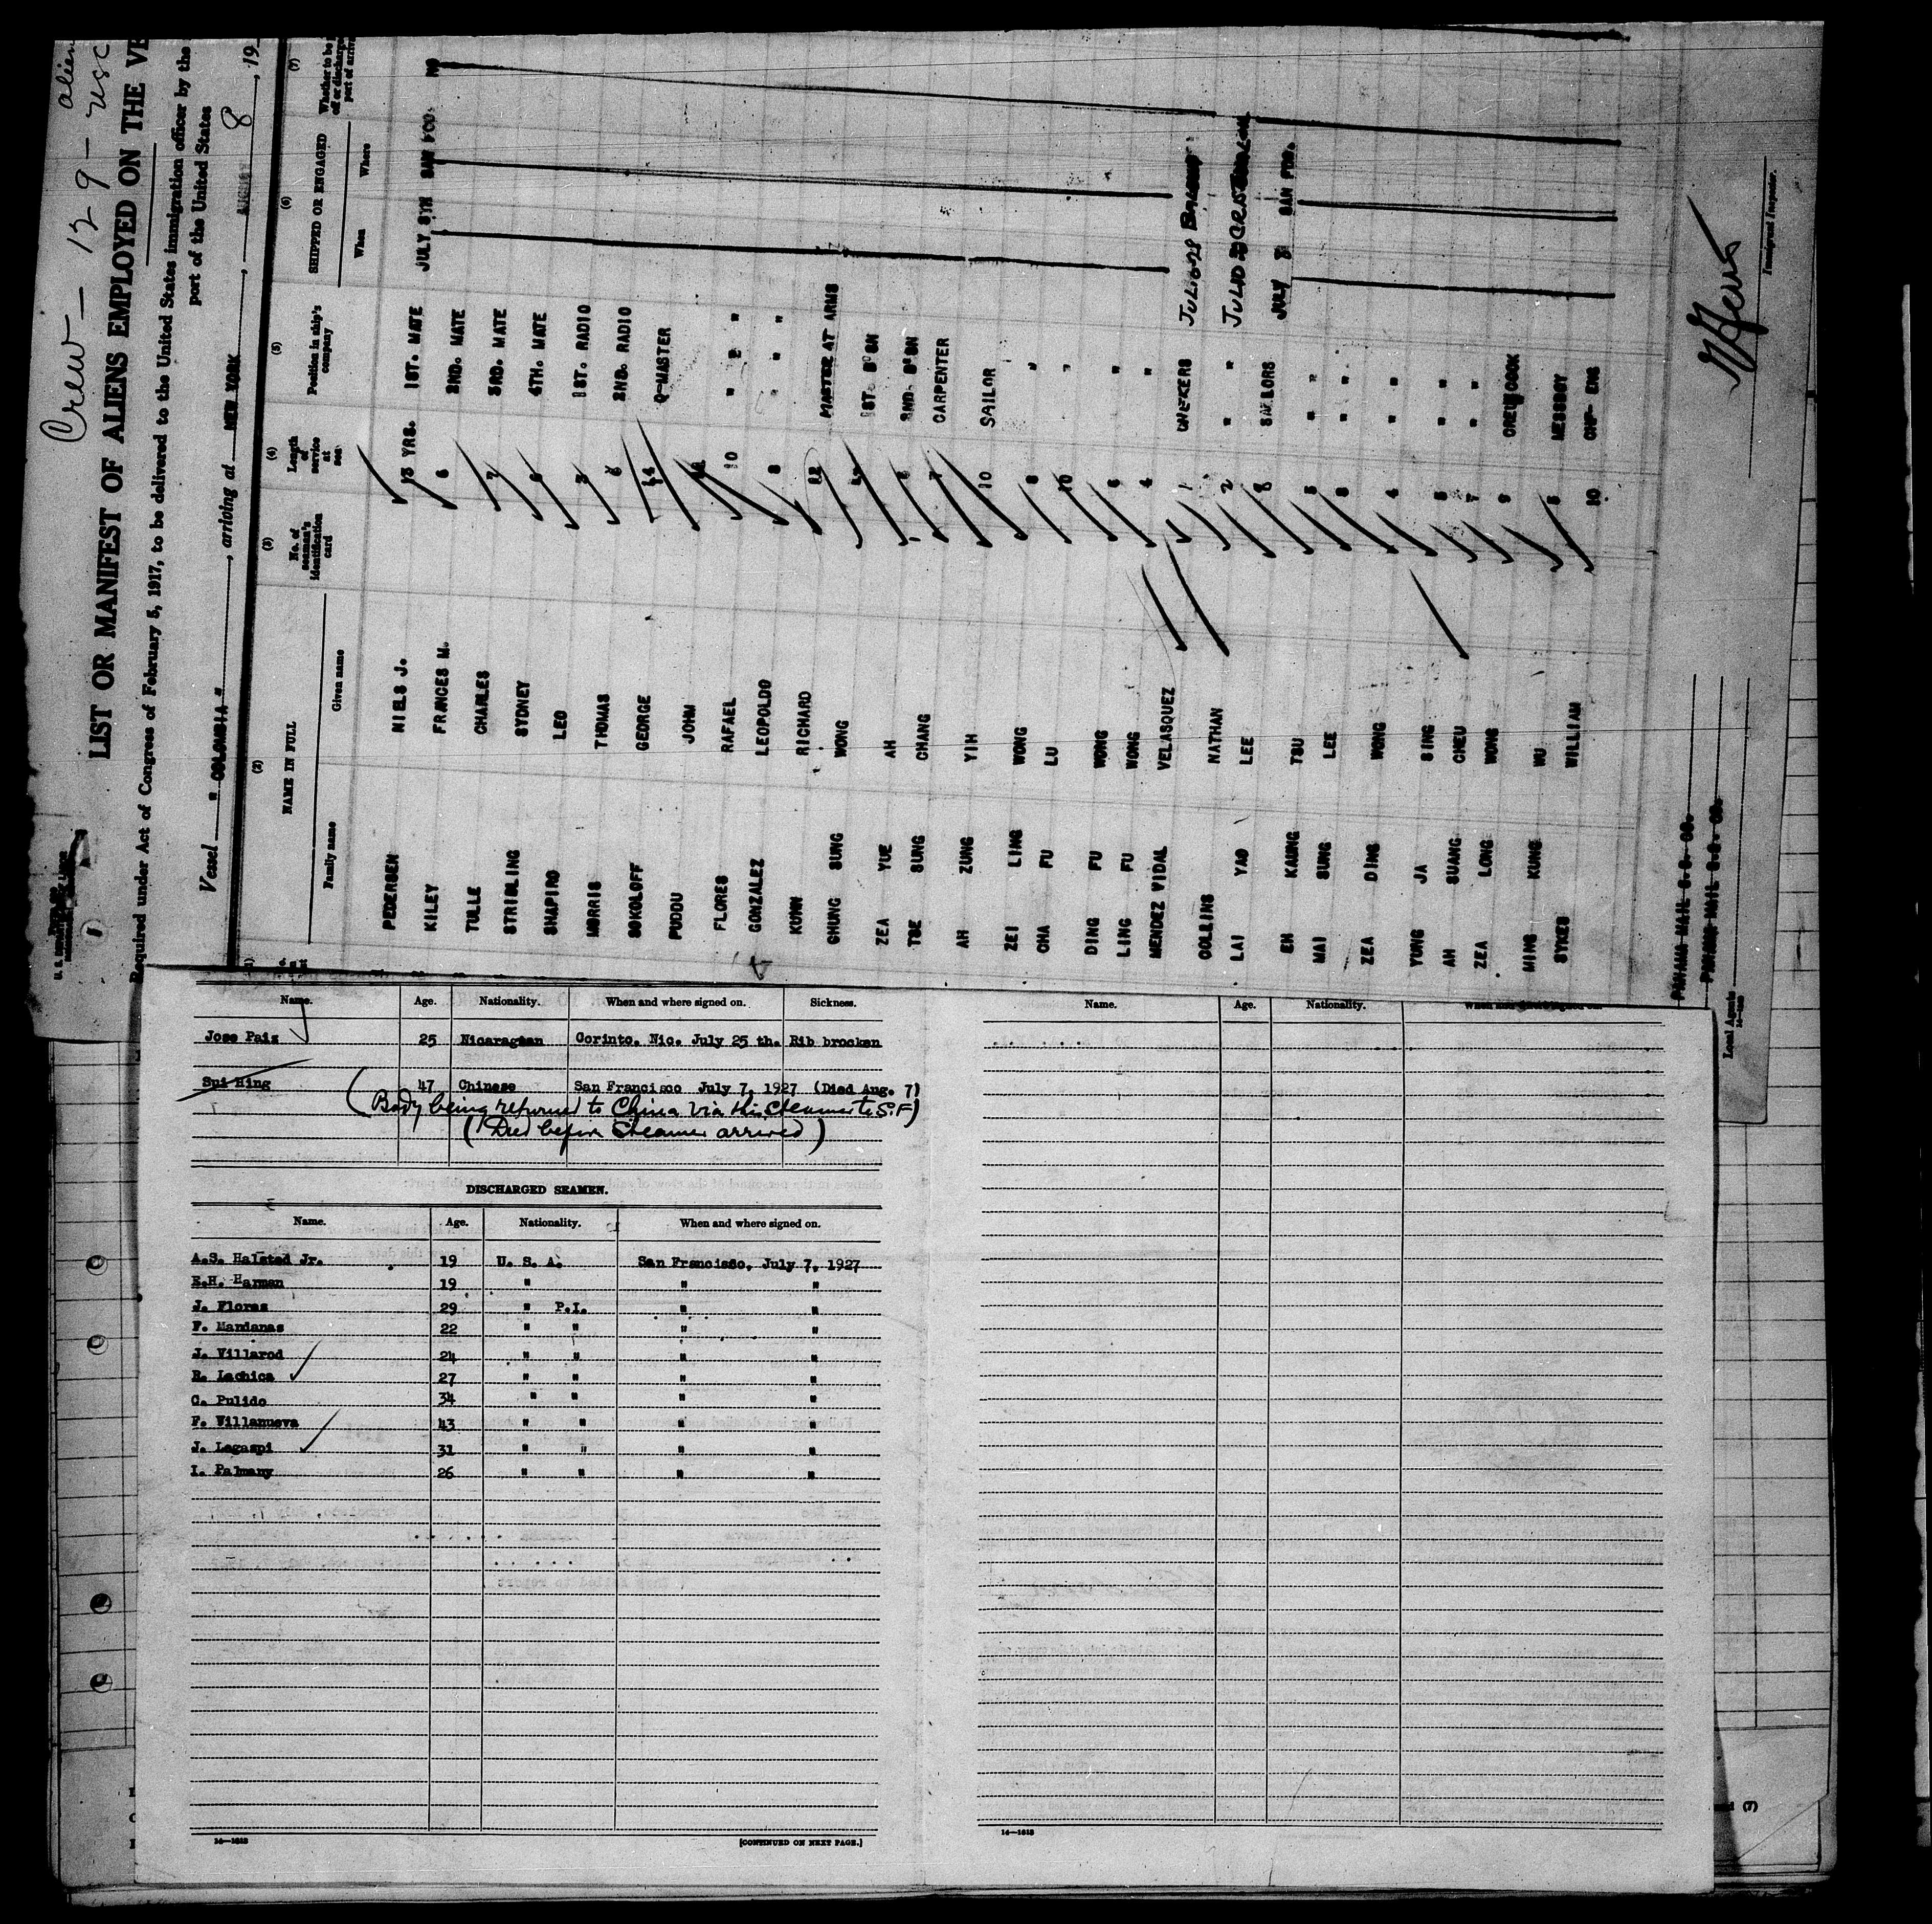 Crew - 129 - usc
alien
LIST OR MANIFEST OF ALIENS EMPLOYED ON THE
Required under Act of Congress of February 5, 1917, to be delivered to the United States immigration officer by the
port of the United States
Vessel " COLOMBIA ", arriving at NEW YORK, AUGUST 8, 19
(2) (3) (4) (5) (6) (7)
NAME IN FULL No. of seaman's identification card Length of service at sea Position in ship's company SHIPPED OR ENGAGED
Family name Given name When Where
PEDERSEN NIELS J. 13 YRS. 1ST. MATE JULY 8TH SAN FCO. NO
KILEY FRANCES M. 6 2ND. MATE
TULLE CHARLES 7 3RD. MATE
STRIBLING SYDNEY 6 4TH. MATE
SHAPIRO LEO 3 1ST. RADIO
MORRIS THOMAS 6 2ND. RADIO
SOKOLOFF GEORGE 14 Q-MASTER
PUDDU JOHN
FLORES RAFAEL 10 " "
GONZALEZ LEOPOLDO 8 " " "
KUNN RICHARD 12 MASTER AT ARMS
CHUNG SUNG WONG 1ST. B'SN
ZEA YUE AH 2ND. B'SN
TSE SUNG CHANG 7 CARPENTER
AH ZUNG YIH 10 SAILOR
ZEI LING WONG 8 "
CHA FU LU 10 "
DING FU WONG "
LING FU WONG 4 "
MENDEZ VIDAL VELASQUEZ 1 JUL
COLLINS NATHAN 2 "
LAI YAO LEE 8 SAILORS JULY 8 SAN FCO.
EH KAUNG TSU 5 " "
MAI SUNG LEE 8 " "
ZEA DING WONG 4 " "
YUNG JA SING 5 " "
AH SUANG CHEU 7 " "
ZEA LONG WONG 9 COOK
MING KUNG WU 5 MESSBOY
SYKES WILLIAM 10 CHF- ENG
PANAMA MAIL S.S. CO.
PANAMA MAIL S.S. CO.
Local Agents
Immigrant Inspector.
Name. Age. Nationality. When and where signed on. Sickness.
Jose Paiz 25 Nicaraguan Corinto. Nic. July 25 th. Rib brocken
Sui Hing 47 Chinese San Francisco July 7, 1927 (Died Aug. 7)
(Body being returned to China via this Steamer to S.F)
(Died before Steamer arrived)
DISCHARGED SEAMEN.
Name. Age. Nationality. When and where signed on.
A.S. Halsted Jr. 19 U. S. A. San Francisco, July 7, 1927
E.H. Harman 19 " " "
J. Floras 29 " P.I. " "
F. Mandanas 22 " " " "
J. Villarod 24 " " " "
R. Lachica 27 " " " "
C. Pulido 34 " " " "
F. Villanueva 43 " " " "
J. Legaspi 31 " " " "
I. Palmany 26 " " " "
14—1613
[CONTINUED ON NEXT PAGE.]
Name. Age. Nationality. When and where signed on.
14—1613
9